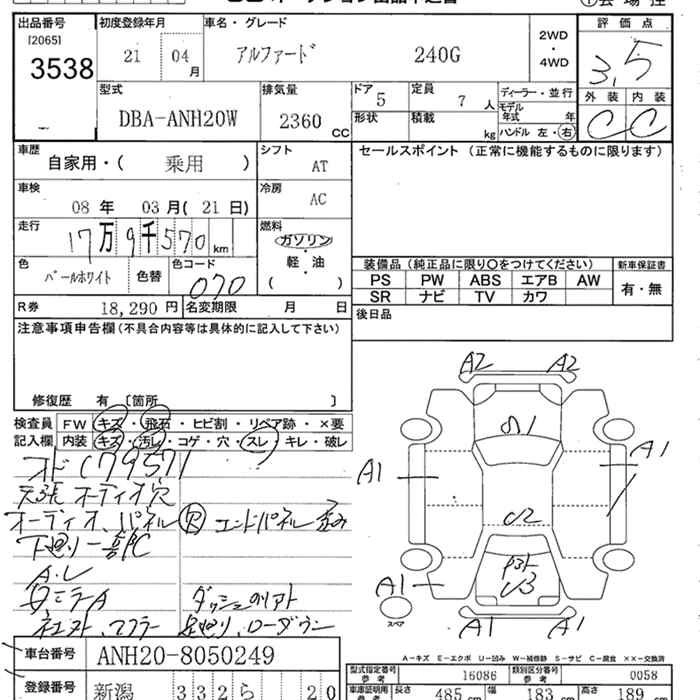 出品番号
[2065]
3538
初度登録年月
21 04月
車名・グレード
アルファード 240G
2WD
・
4WD
評価点
3.5
外装 内装
C C
型式
DBA-ANH20W
排気量
2360 CC
ドア
5
定員
7 人
形状
積載
kg
ディーラー・並行
モデル年式 年
ハンドル 左・右
車歴
自家用・( 乗用 )
シフト
AT
セールスポイント (正常に機能するものに限ります)
車検
08 年 03 月( 21 日)
冷房
AC
走行
17万9千570 km
燃料
ガソリン
・
軽・油
( )
色
パールホワイト
色替
色コード
070
装備品 (純正品に限り○をつけてください)
新車保証書
PS PW ABS エアB AW
SR ナビ TV カワ
有・無
R券 18,290 円
名変期限 月 日
後日品
注意事項申告欄(不具合内容等は具体的に記入して下さい)
修復歴 有 〔箇所 〕
検査員 FW キズ・飛石・ヒビ割・リペア跡・×要
記入欄 内装 キズ・汚レ・コゲ・穴・スレ・キレ・破レ
オド C179571
天張 オーディオ穴
オーディオ、パネル欠 エンドパネル歪み
下廻り一部C
A・L
ダッシュ
ローダウン
A2 A2
U1
A1 A1
U2
U3
A1
スペア
A1 A1
車台番号 ANH20-8050249
登録番号 新潟 332 ら 20
A-キズ E-エクボ U-凹み W-補修跡 S-サビ C-腐食 ××-交換済
型式指定番号 参考 16086
類別区分番号 参考 0058
車庫証明用 参考 長さ 485 cm 幅 183 cm 高さ 189 cm